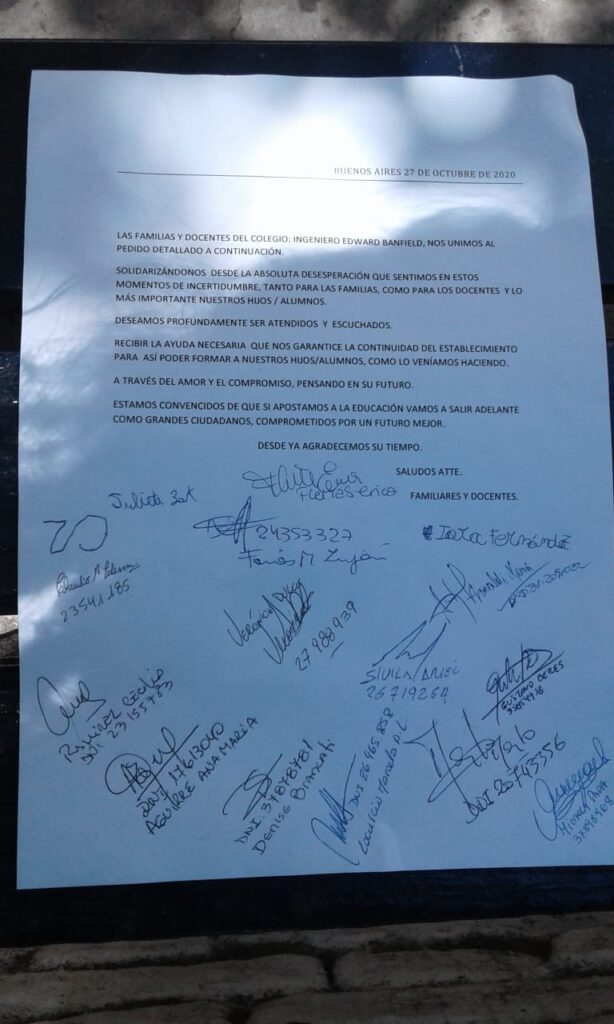 BUENOS AIRES 27 DE OCTUBRE DE 2020
LAS FAMILIAS Y DOCENTES DEL COLEGIO: INGENIERO EDWARD BANFIELD, NOS UNIMOS AL
PEDIDO DETALLADO A CONTINUACIÓN.
SOLIDARIZÁNDONOS DESDE LA ABSOLUTA DESESPERACIÓN QUE SENTIMOS EN ESTOS
MOMENTOS DE INCERTIDUMBRE, TANTO PARA LAS FAMILIAS, COMO PARA LOS DOCENTES Y LO
MÁS IMPORTANTE NUESTROS HIJOS / ALUMNOS.
DESEAMOS PROFUNDAMENTE SER ATENDIDOS Y ESCUCHADOS.
RECIBIR LA AYUDA NECESARIA QUE NOS GARANTICE LA CONTINUIDAD DEL ESTABLECIMIENTO
PARA ASÍ PODER FORMAR A NUESTROS HIJOS/ALUMNOS, COMO LO VENÍAMOS HACIENDO.
A TRAVÉS DEL AMOR Y EL COMPROMISO, PENSANDO EN SU FUTURO.
ESTAMOS CONVENCIDOS DE QUE SI APOSTAMOS A LA EDUCACIÓN VAMOS A SALIR ADELANTE
COMO GRANDES CIUDADANOS, COMPROMETIDOS POR UN FUTURO MEJOR.
DESDE YA AGRADECEMOS SU TIEMPO.
SALUDOS ATTE.
FAMILIARES Y DOCENTES.
Julieta
24353327
Fernández
23541185
Verónica
27988939
25719264
RAMIREZ CECILIO
DNI 23155783
DNI 17613040
AGUIRRE ANA MARIA
DNI. 37878781
Denise Brancati
DNI 26465858
GUSTAVO
DNI 20743356